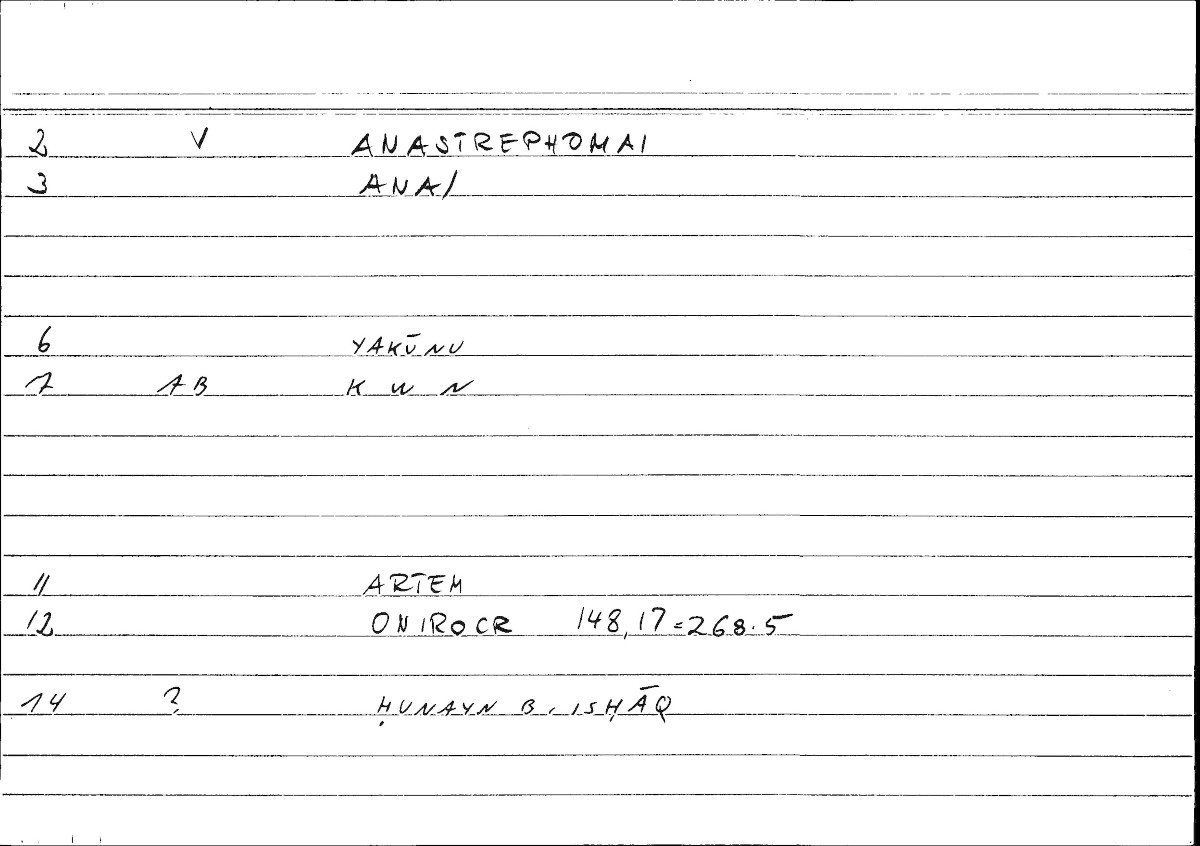 2 V ANASTREPHOMAI
3 ANA/
6 YAKŪNU
7 AB K W N
11 ARTEM
12 ONIROCR 148,17=268.5
14 ? ḤUNAYN B. ISḤĀQ